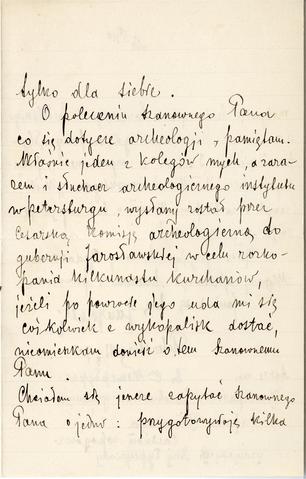 tylko dla siebie.
O poleceniu szanownego Pana
co się dotycze archeologji, pamiętam.
Właśnie jeden z kolegów mych, a zara-
zem i słuchacz archeologicznego instytutu
w petersburgu, wysłany został przez
Cesarską Komisję archeologiczną do
gubernji Jarosławskiej w celu rozko-
pania kilkunastu kurhanów,
jeżeli po powrocie jego uda mi się
cośkolwiek z wykopalisk dostać,
nieomieszkam donieść o tem szanownemu
Panu.
Chciałem się jeszcze zapytać szanownego
Pana o jedno: przygotowywuję kilka